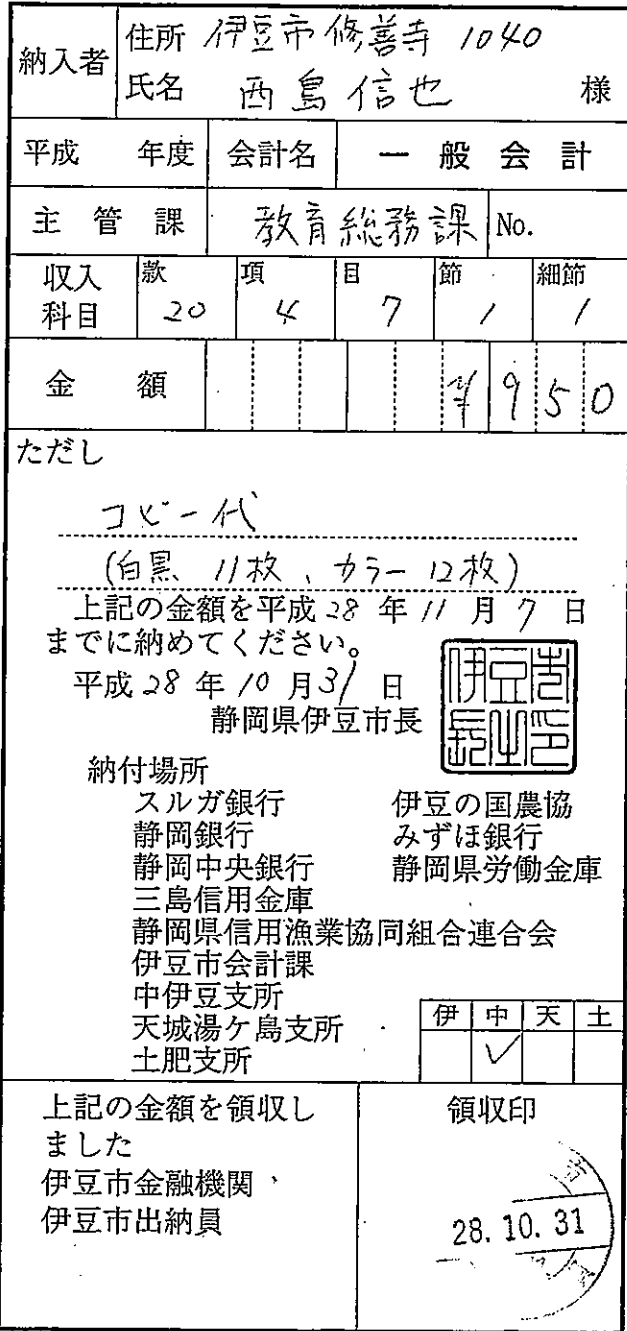 納入者 住所 伊豆市修善寺 1040
氏名 西島信也 様
平成 年度 会計名 一般会計
主管課 教育総務課 No.
収入科目 款 20 項 4 目 7 節 1 細節 1
金額 ¥950
ただし
コピー代
(白黒 11枚、カラー 12枚)
上記の金額を平成 28 年 11 月 7 日
までに納めてください。
平成 28 年 10 月 31 日
静岡県伊豆市長
伊豆市長之印
納付場所
スルガ銀行 伊豆の国農協
静岡銀行 みずほ銀行
静岡中央銀行 静岡県労働金庫
三島信用金庫
静岡県信用漁業協同組合連合会
伊豆市会計課
中伊豆支所
天城湯ケ島支所
土肥支所
伊 中 天 土
✓
上記の金額を領収し
ました
伊豆市金融機関
伊豆市出納員
領収印
28.10.31